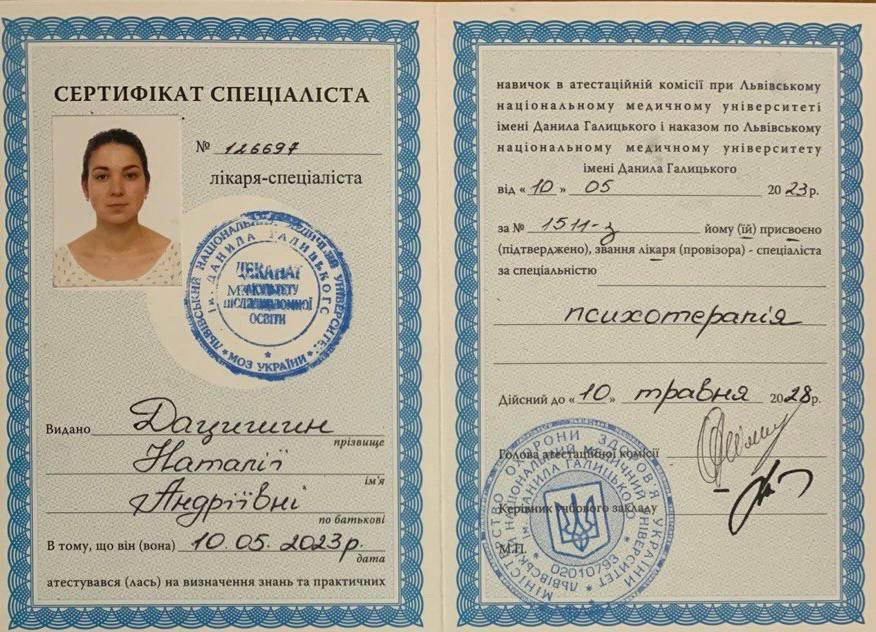 СЕРТИФІКАТ СПЕЦІАЛІСТА
№ 126697
лікаря-спеціаліста
ЛЬВІВСЬКИЙ НАЦІОНАЛЬНИЙ МЕДИЧНИЙ УНІВЕРСИТЕТ
ІМ. ДАНИЛА ГАЛИЦЬКОГО
ДЕКАНАТ
ФАКУЛЬТЕТУ
ПІСЛЯДИПЛОМНОЇ
ОСВІТИ
* МОЗ УКРАЇНИ *
Видано Дацишин
прізвище
Наталії
ім'я
Андріївні
по батькові
В тому, що він (вона) 10.05.2023р.
дата
атестувався (лась) на визначення знань та практичних
навичок в атестаційній комісії при Львівському
національному медичному університеті
імені Данила Галицького і наказом по Львівському
національному медичному університету
імені Данила Галицького
від «10» 05 2023р.
за № 1511-з йому (їй) присвоєно
(підтверджено), звання лікаря (провізора) - спеціаліста
за спеціальністю
психотерапія
Дійсний до «10» травня 2028р.
Голова атестаційної комісії
Керівник учбового закладу
М.П.
МІНІСТЕРСТВО ОХОРОНИ ЗДОРОВ'Я УКРАЇНИ
ЛЬВІВСЬКИЙ НАЦІОНАЛЬНИЙ МЕДИЧНИЙ УНІВЕРСИТЕТ
ІМ. ДАНИЛА ГАЛИЦЬКОГО
* 02010793 *